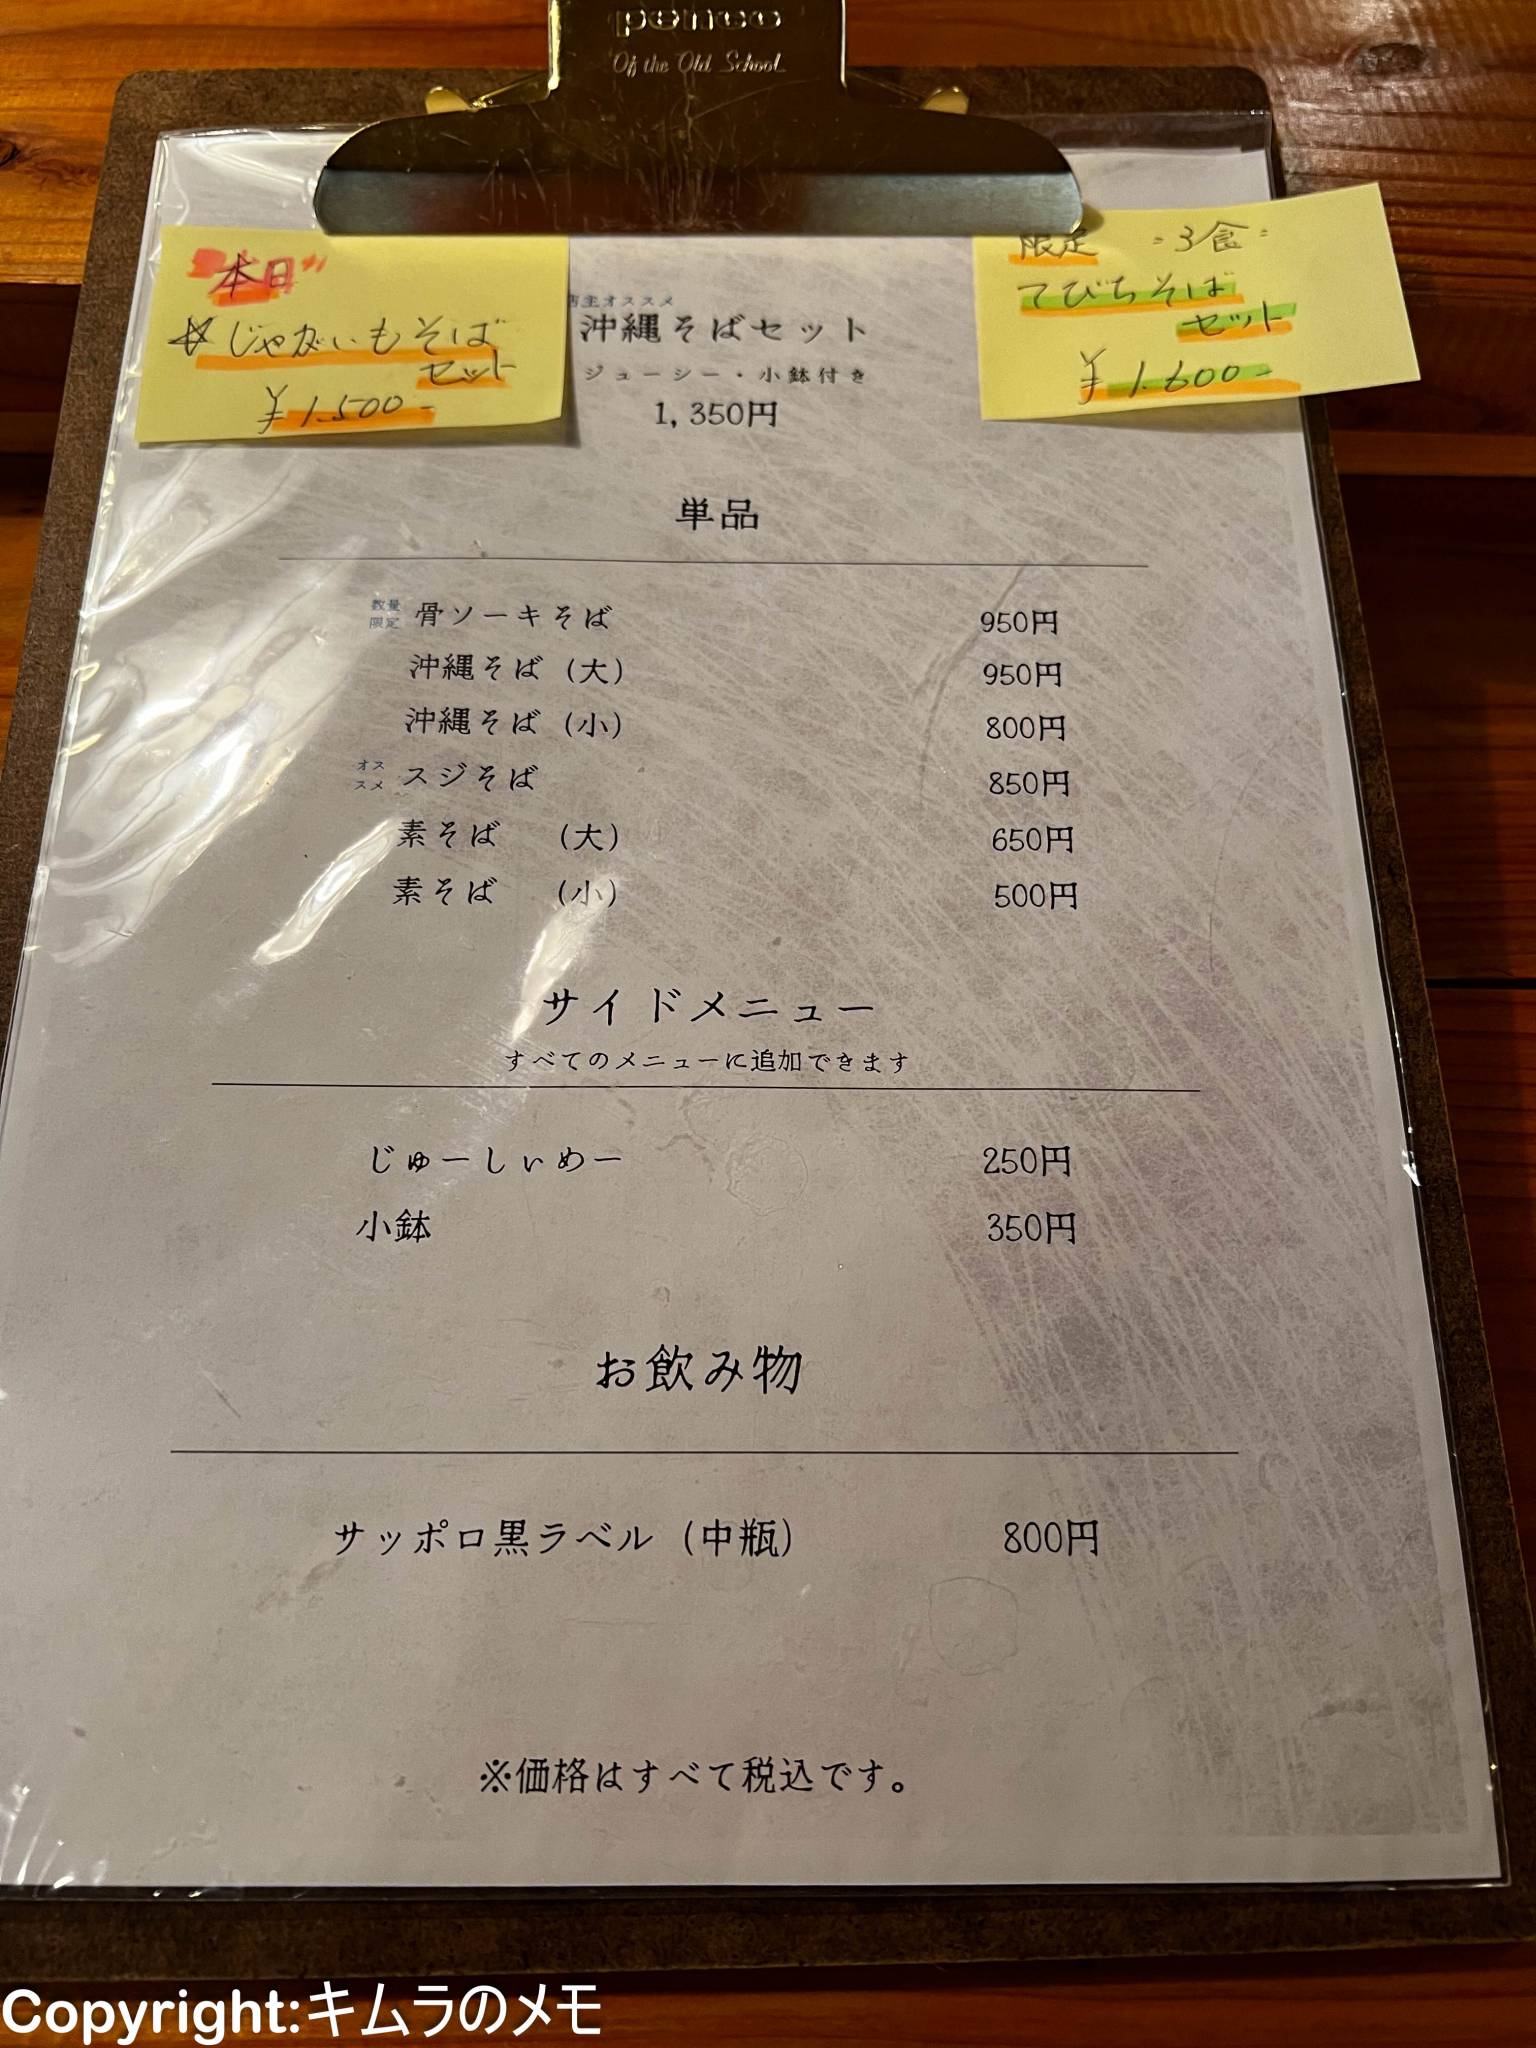 penco
Of the Old School
"本日"
☆じゃがいもそば
セット
¥1.500-
店主オススメ
沖縄そばセット
ジューシー・小鉢付き
1,350円
限定 =3食=
てびちそば
セット
¥1.600-
単品
数量限定 骨ソーキそば 950円
沖縄そば（大） 950円
沖縄そば（小） 800円
オススメ スジそば 850円
素そば （大） 650円
素そば （小） 500円
サイドメニュー
すべてのメニューに追加できます
じゅーしぃめー 250円
小鉢 350円
お飲み物
サッポロ黒ラベル（中瓶） 800円
※価格はすべて税込です。
Copyright:キムラのメモ